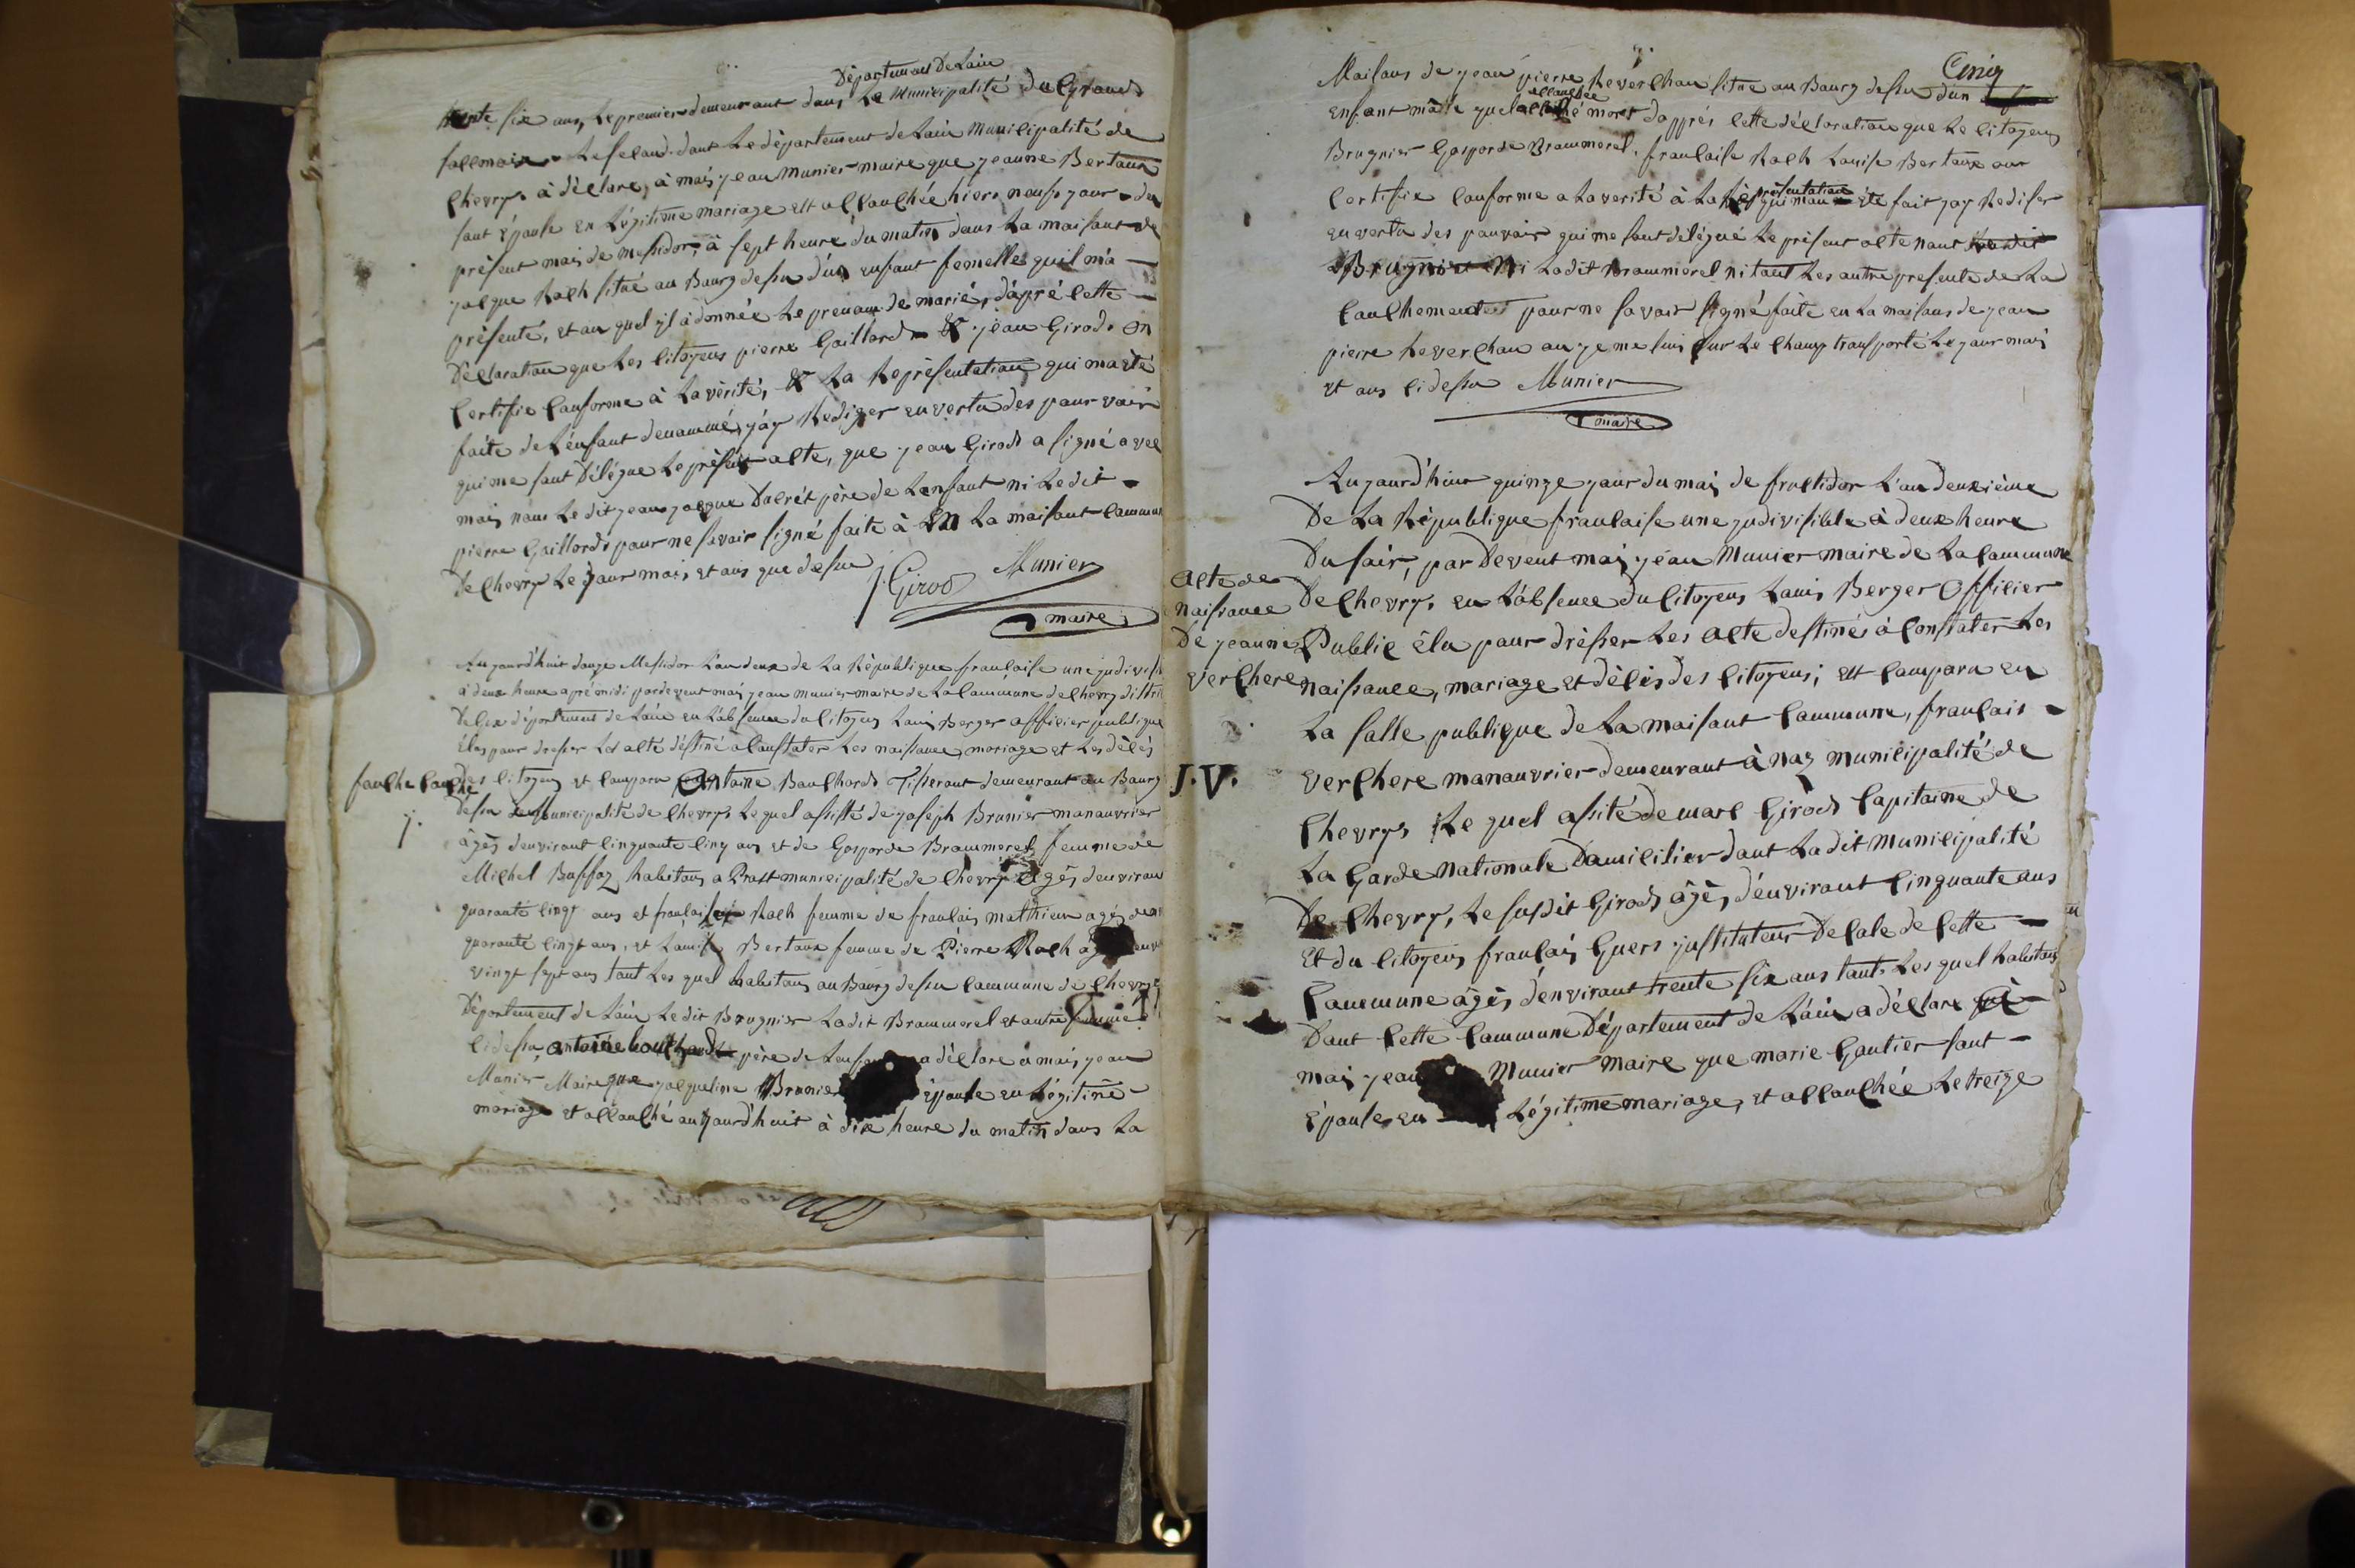 Département De Lain
trente six ans, Le premier demeurant dans Le Municipalité du Grand
sacconnix Le second dant Le département de Lain Municipalité de
Chevrÿ à déclare, à moi jean Munier maire que jeanne Bertaux
sont épouse en Légitime mariage est accouchée hiers neufs jour du
présent mois de Messidor, à sept heure du matin dans La maisont de
jacque Roch situé au Bourg dessu d'un enfant femelle quil m'a
présenté, et au quel jl à donnée Le prenom de marie, d'apré cette
Déclaration que Les citoyens pierre Gaillard & jean Girod on
Certifie Conforme à La vérité, & La Représentation qui ma eté
faite de L'enfant denommé, j'ay Rediger en vertu des pour voir
qui me sont Délégue Le présent acte, que jean Girod a signé avec
moi, nom Le dit jean jacque Dacrét père de Lenfant ni Le dit
pierre Gaillard pour ne savoir signé faite à EN La maisont Commun
De Chevrÿ Le jour mois et ans que dessu
J Girod Munier
maire
Aujourd'huit douze Messidor L'an deux de La République française une jndivisi
à deux heure apré midi pardevent moi jean munier maire de La Commune de Chevrÿ distri
De Gex département de Lain en L'absence du Citoyen Louis Berger officier publique
Elus pour dresser Les acte déstiné à Constater Les naissance mariage et Les décés
des citoyens et Comparu Antoine Bouchard Tisserant demeurant au Bourg
fauche Couche
j.
dessu Municipalité de Chevrÿ Le quel assisté de joseph Brunier manouvrier
âgés denviront cinquante cinq ans et de Gasparde Brammerel femme de
Michel Buffaz habitans a Prast municipalité de Chevrÿ âgés denviron
quarante cinqt ans et française Roch femme de françois mathieu agés den
quarante cinqt ans, et Louise Bertaux femme de Pierre Roch âg
vingt sept ans tout Les quel habitans au Bourg dessu Commune de Chevrÿ
Département de Lain Le dit Brugnier Ladit Brammerel et autre femme
ci dessu antoine bouchard père de Lenfant a déclare a moi jean
Munier Maire que jacqueline Brunier épouse en Légitime
mariage et accouché aujourd'huit à dixe heure du matin dans La
Cinq
Maisons de jean pierre Reverchon situé au Bourg dessu dun
accouchée
Enfant mâlle quel mort dapprés cette déclaration que Le citoyens
Brugnier Gasparde Brammerel, française Roch Louise Bertaux on
Certifie Conforme a La verité à La présentation qui mon été fait jay Rediser
en vertu des pouvoir qui me sont délégué Le présent acte nont
Brugnier Ni Ladit Brammerel ni tout Les autre presente de La
Couchement pour ne savoir signé faite en La maisons de jean
pierre Reverchon ou je me suis sur Le champ transporté Le jour mois
et ans ci dessu Munier
maire
Aujourd'huit quinze jour du moi, de fructidor L'an deuxième
De La République française une jndivisible à deux heure
Du soir, par Devent moi jean Munier maire de La Commune
Acte de
naissance
De jeanne
Verchere
De Chevrÿ, en L'absence du Citoyens Louis Berger officier
Public élu pour drésser Les acte destinés à Constater Les
naissance, mariage et décés des citoyens; est Comparu en
La salle publique de La maisont Commune, françois
J.V.
verchere manouvrier demeurant à naz municipalité de
Chevrÿ, Le quel assité de marc Girod Capitaine de
La Garde nationale Domicilier dant Ladit Municipalité
De Chevrÿ, Le susdit Girod âgés, d'environt cinquante ans
Et du citoyens françois Guers jnstituteur Decole de cette
Commune âgés d'environt trente six ans touts Les quel habitans
Dant cette Commune Département de L'ain a déclare
moi jean Munier maire que marie Gautier sont
épouse, en Légitime mariage, et accouchée Le treize